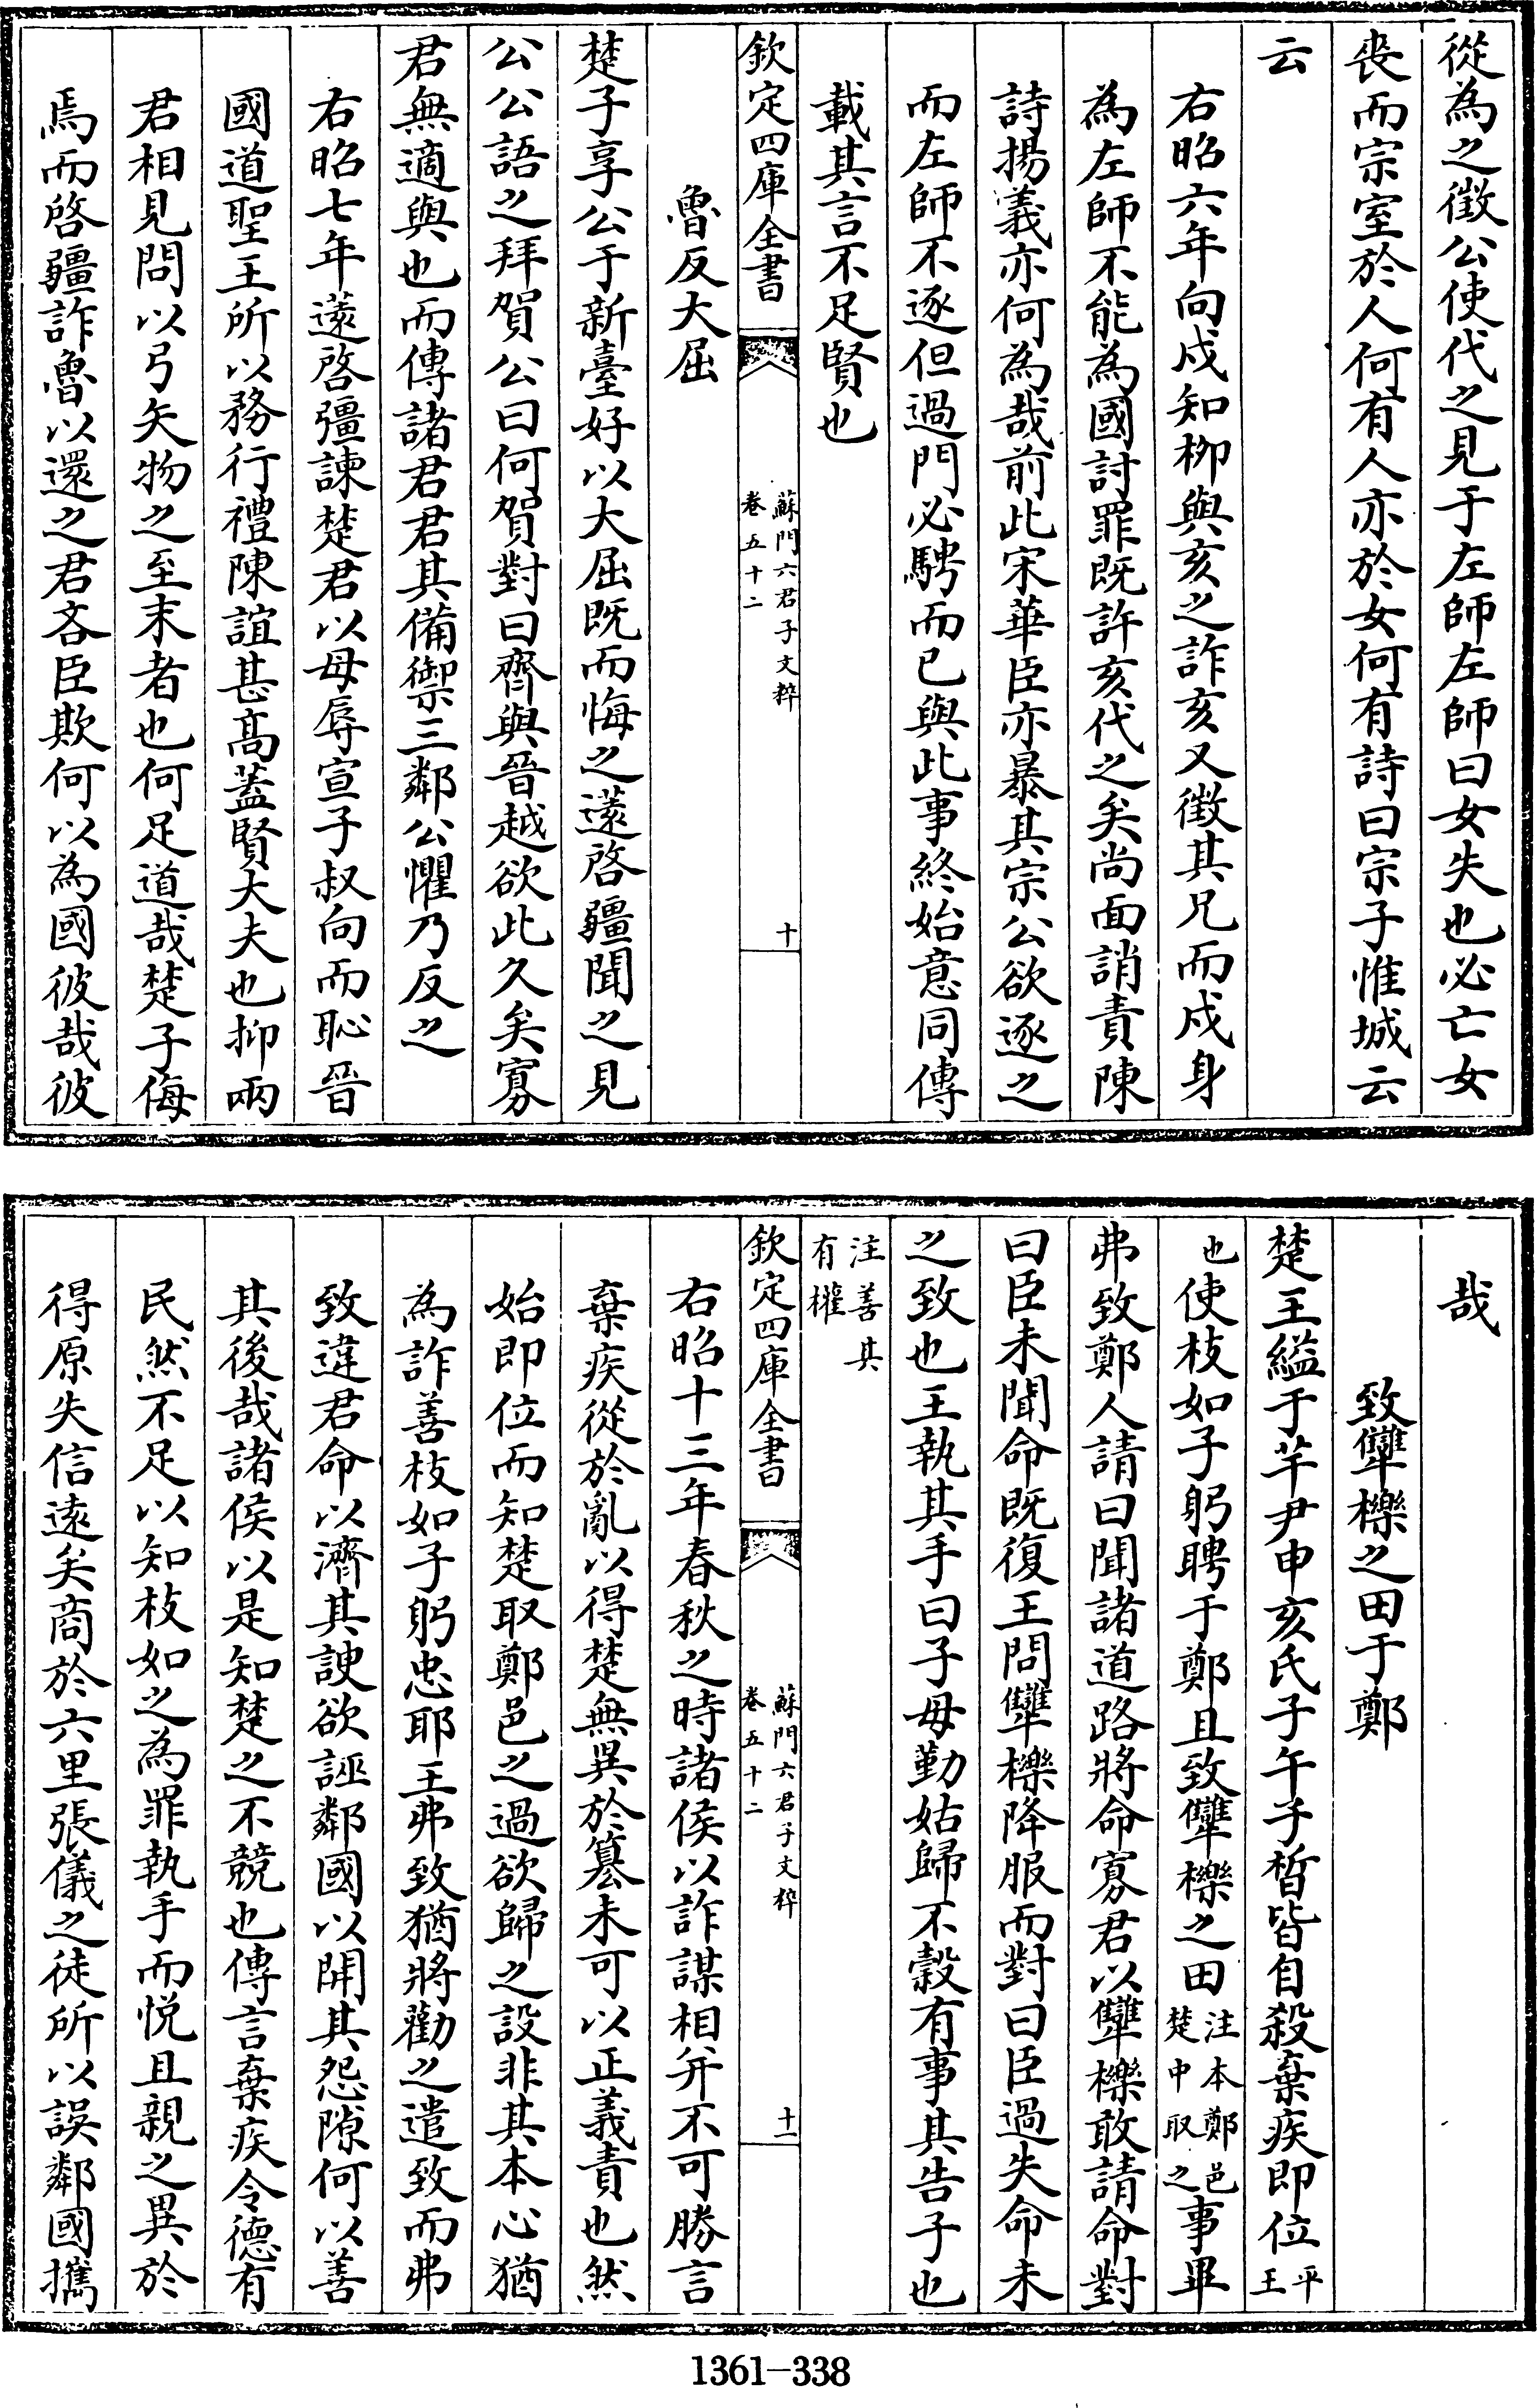 從為之徴公使代之見于左師左師曰女失也必亡女
喪而宗室於人何有人亦於女何有詩曰宗子惟城云
云
右昭六年向戍知栁與亥之詐亥又徴其兄而戍身
為左師不能為國討罪既許亥代之矣尚面誚責陳
詩揚義亦何為哉前此宋華臣亦暴其宗公欲逐之
而左師不逐但過門必騁而已與此事終始意同傳
載其言不足賢也
欽定四庫全書
蘇門六君子文粹
卷五十二
十
魯反大屈
楚子享公于新臺好以大屈既而悔之薳啓疆聞之見
公公語之拜賀公曰何賀對曰齊與晉越欲此久矣寡
君無適與也而傳諸君君其備禦三鄰公懼乃反之
右昭七年薳啓彊諫楚君以毋辱宣子叔向而恥晉
國道聖王所以務行禮陳誼甚髙蓋賢大夫也抑兩
君相見問以弓矢物之至末者也何足道哉楚子侮
焉而啓疆詐魯以還之君吝臣欺何以為國彼哉彼
哉
致犫櫟之田于鄭
楚王縊于芊尹申亥氏子午子晳皆自殺棄疾即位平王
也使枝如子躬聘于鄭且致犫櫟之田注本鄭邑楚中取之事畢
弗致鄭人請曰聞諸道路將命寡君以犫櫟敢請命對
曰臣未聞命既復王問犫櫟降服而對曰臣過失命未
之致也王執其手曰子毋勤姑歸不穀有事其告子也
注善其有權
欽定四庫全書
蘇門六君子文粹
卷五十二
十一
右昭十三年春秋之時諸侯以詐謀相并不可勝言
棄疾從於亂以得楚無異於簒未可以正義責也然
始即位而知楚取鄭邑之過欲歸之設非其本心猶
為詐善枝如子躬忠耶王弗致猶將勸之遣致而弗
致違君命以濟其諛欲誣鄰國以開其怨隙何以善
其後哉諸侯以是知楚之不競也傳言棄疾令德有
民然不足以知枝如之為罪執手而悦且親之異於
得原失信逺矣商於六里張儀之徒所以誤鄰國攜
1361-338